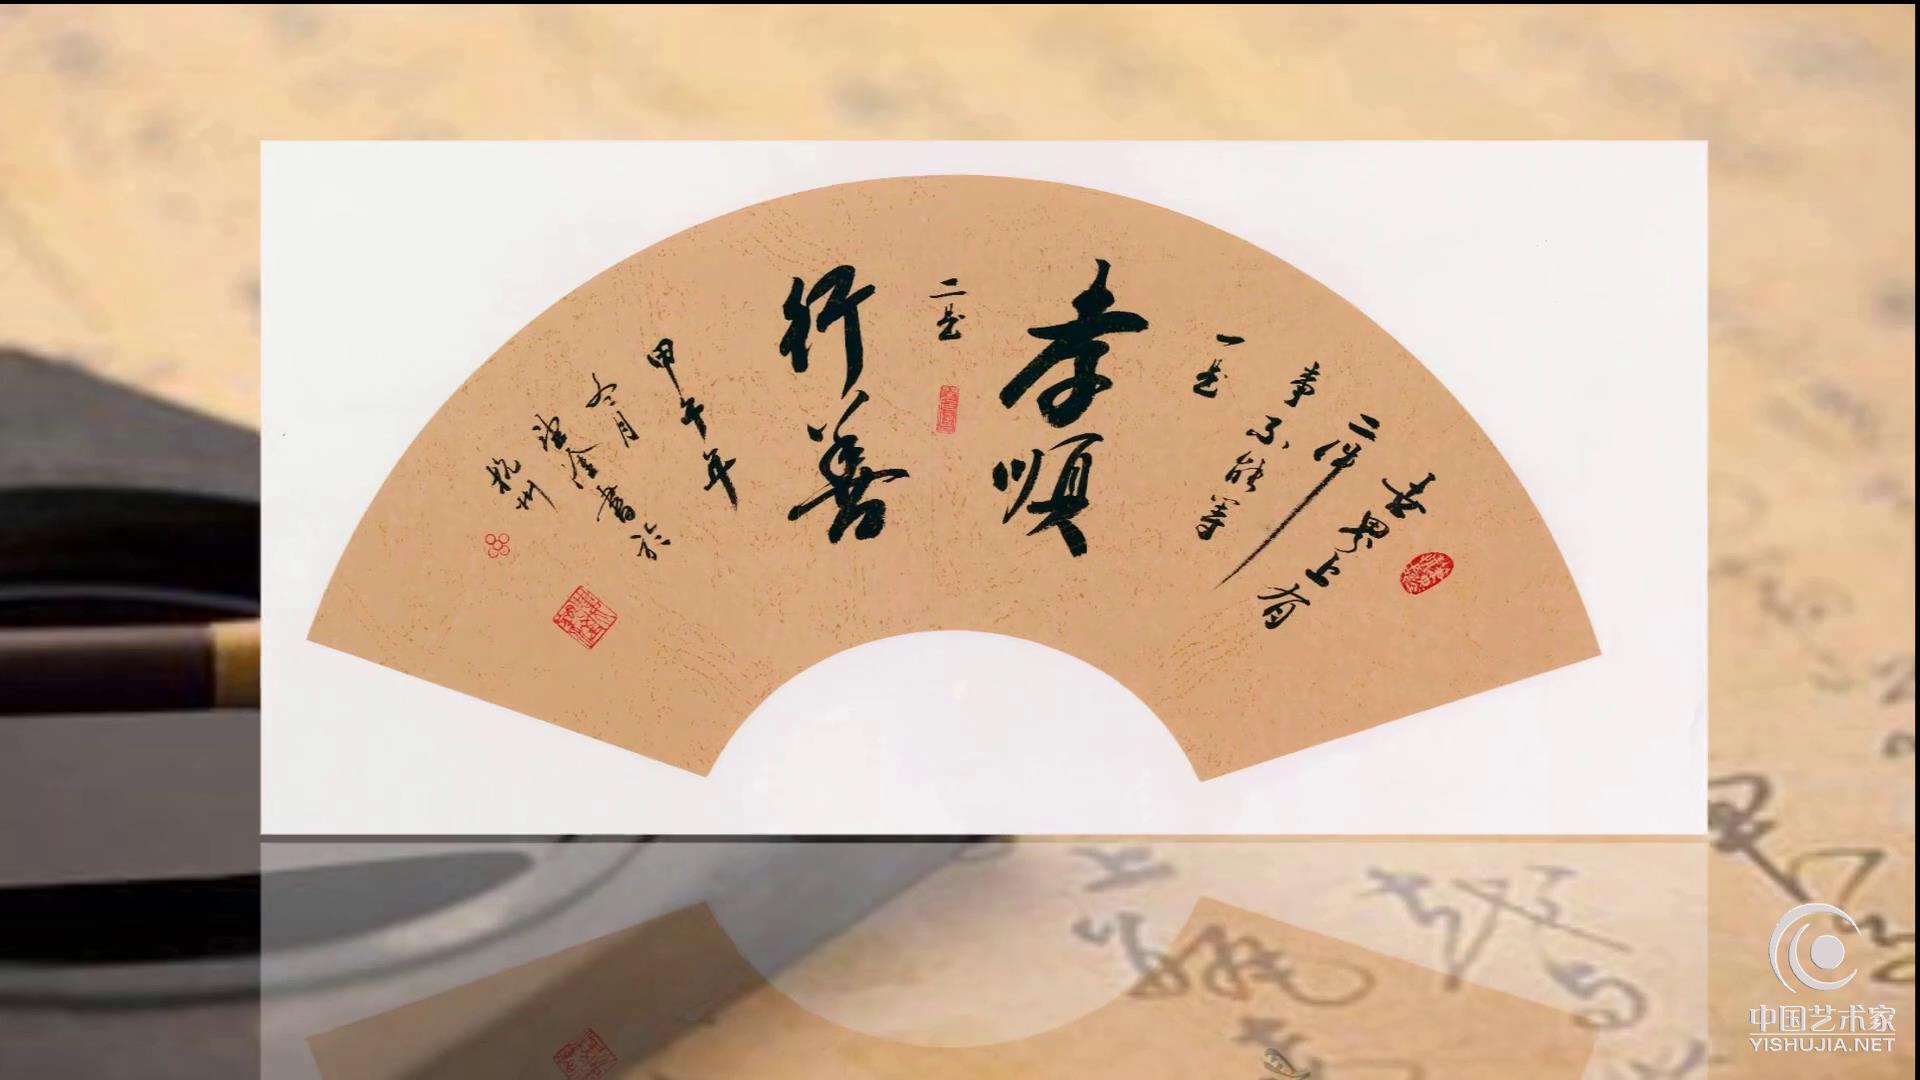 世界上有
二件
事不能等
一是
孝順
二是
行善
甲午年
冬月
書於
杭州
中国艺术家
YISHUJIA.NET